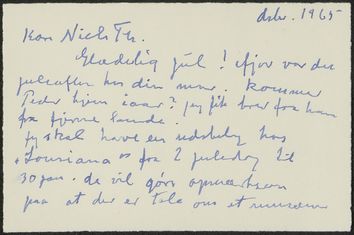 dcbr. 1965
Kære Niels Th.
Glædelig jul! ifjor var du
juleaften hos din mor. kommer
Peder hjem iaar? jeg fik brev fra ham
fra fjerne lande.
jeg skal have en udstilling hos
"Louisiana" fra 2 juledag til
30 jan. de vil gøre opmærksom
paa at der er tale om et museum